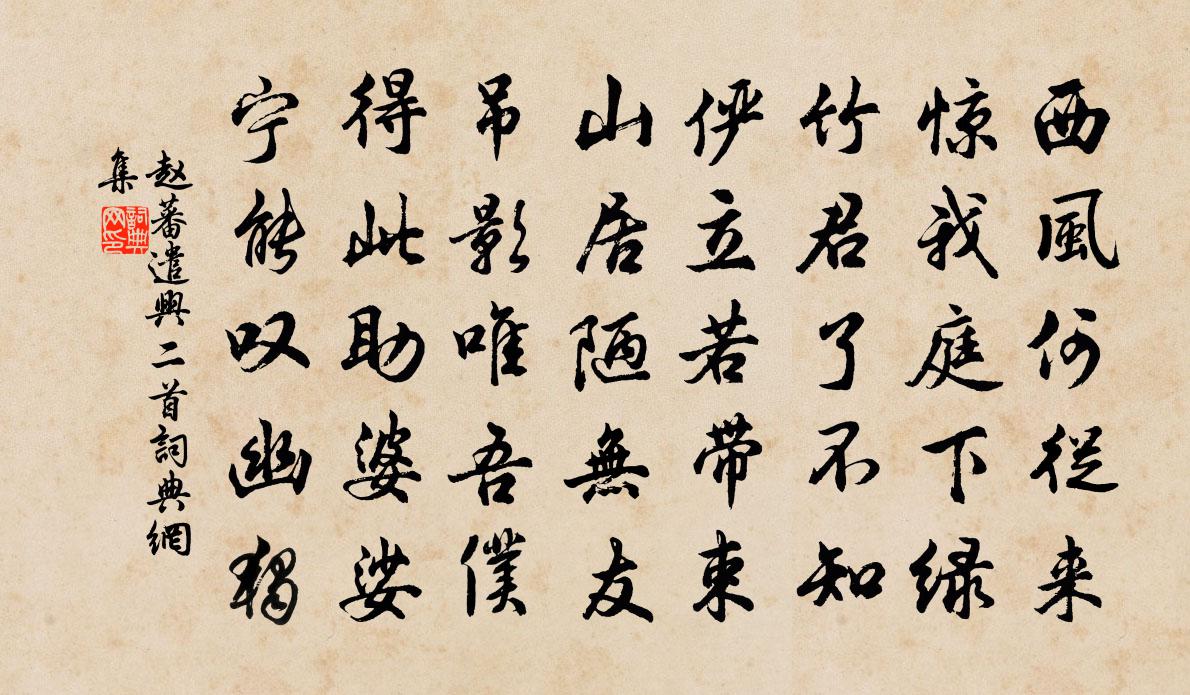 西風何從来
惊我庭下绿
竹君了不知
俨立若带束
山居陋無友
吊影唯吾僕
得此助婆娑
宁能叹幽独
赵蕃遣興二首詞典網
集
詞典网印